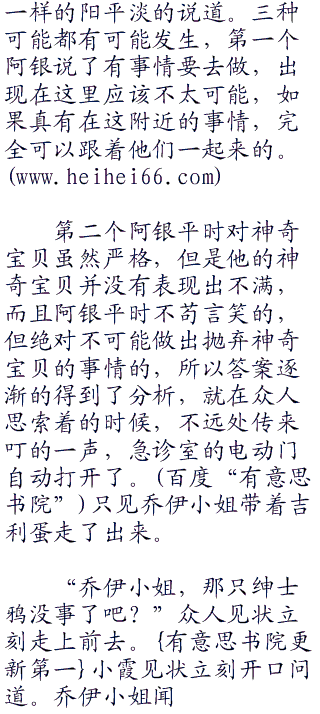 一样的阳平淡的说道。三种
可能都有可能发生，第一个
阿银说了有事情要去做，出
现在这里应该不太可能，如
果真有在这附近的事情，完
全可以跟着他们一起来的。
(www.heihei66.com)
第二个阿银平时对神奇
宝贝虽然严格，但是他的神
奇宝贝并没有表现出不满，
而且阿银平时不苟言笑的，
但绝对不可能做出抛弃神奇
宝贝的事情的，所以答案逐
渐的得到了分析，就在众人
思索着的时候，不远处传来
叮的一声，急诊室的电动门
自动打开了。(百度“有意思
书院”)只见乔伊小姐带着吉
利蛋走了出来。
“乔伊小姐，那只绅士
鸦没事了吧？”众人见状立
刻走上前去。{有意思书院更
新第一}小霞见状立刻开口问
道。乔伊小姐闻